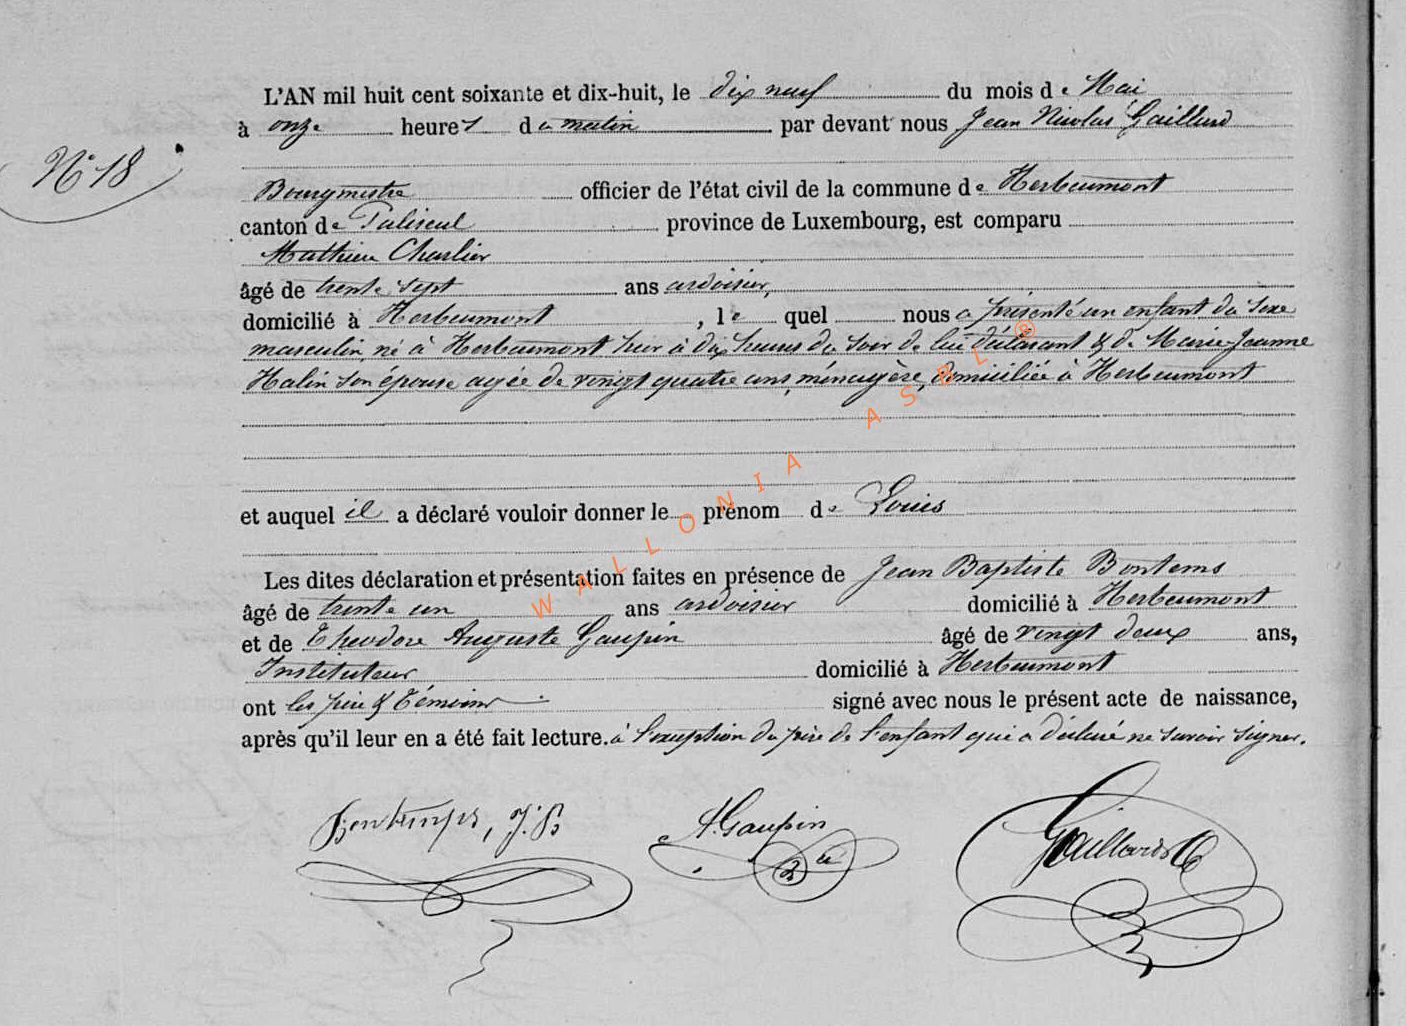 L'AN mil huit cent soixante et dix-huit, le dix neuf du mois de Mai
à onze heures du matin par devant nous Jean Nicolas Gaillard
N° 18
Bourgmestre officier de l'état civil de la commune de Herbeumont
canton de Paliseul province de Luxembourg, est comparu
Mathieu Charlier
âgé de trente sept ans ardoisier,
domicilié à Herbeumont, le quel nous a présenté un enfant du sexe
masculin né à Herbeumont hier à dix heures du soir de lui déclarant & de Marie Jeanne
Halin son épouse agée de vingt quatre ans, ménagère, domiciliée à Herbeumont
et auquel il a déclaré vouloir donner le prénom de Louis
Les dites déclaration et présentation faites en présence de Jean Baptiste Bontems
âgé de trente un ans ardoisier domicilié à Herbeumont
et de Théodore Auguste Gaupin âgé de vingt deux ans,
Instituteur domicilié à Herbeumont
ont les père & témoins signé avec nous le présent acte de naissance,
après qu'il leur en a été fait lecture. à l'exception du père de l'enfant qui a déclaré ne savoir signer.
Bontemps, J. B
A. Gaupin
Gaillard
WALLONIA ASBL ®